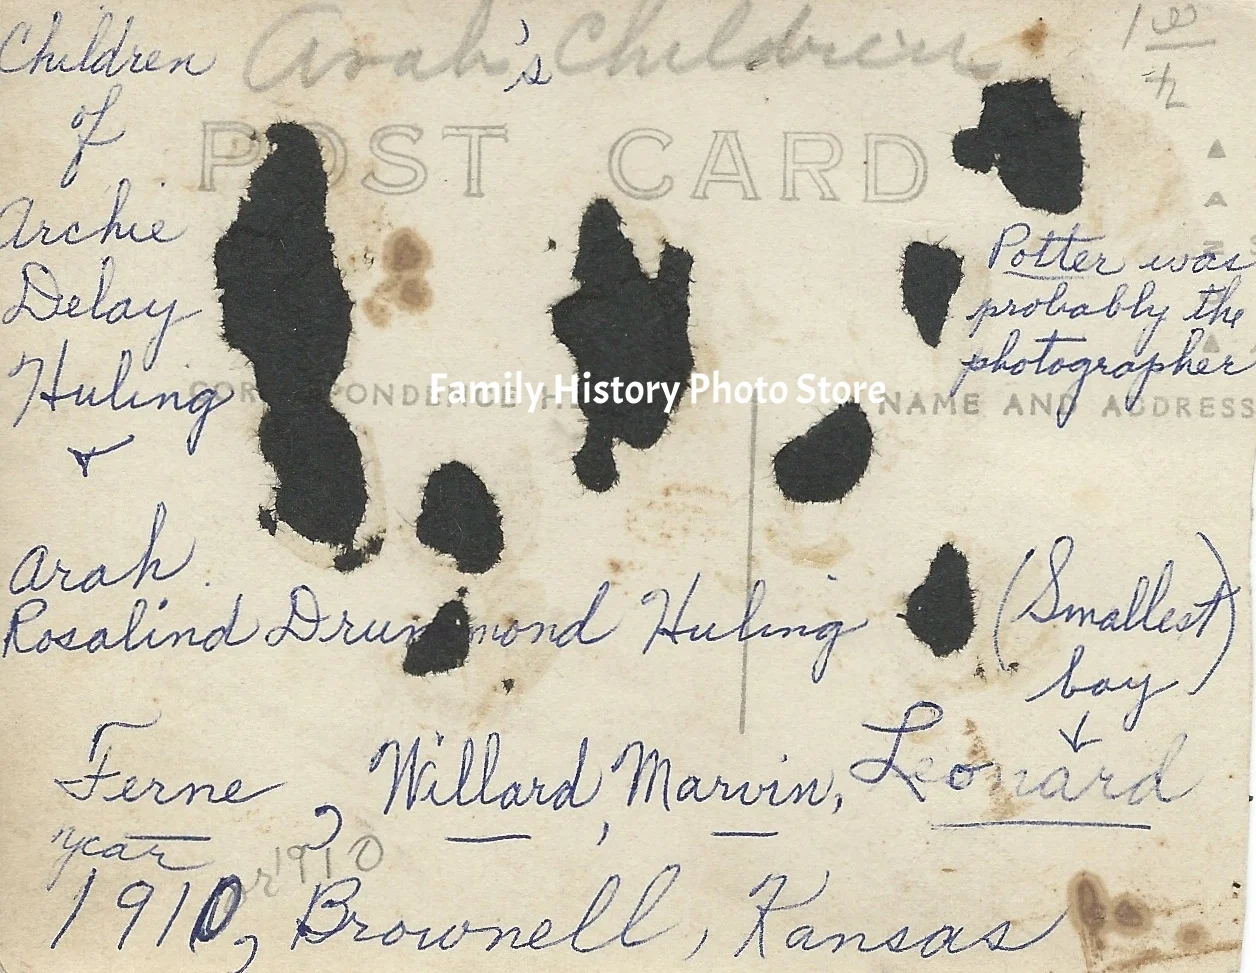 Children Arah's Children 1 00
of
POST CARD
Archie
Delay
Huling
Potter was
probably the
photographer
CORRESPONDENCE HE
NAME AND ADDRESS
Family History Photo Store
&
Arah
Rosalind Drummond Huling
(Smallest
boy)
Ferne, Willard, Marvin, Leonard
year
or 1910
1910, Brownell, Kansas